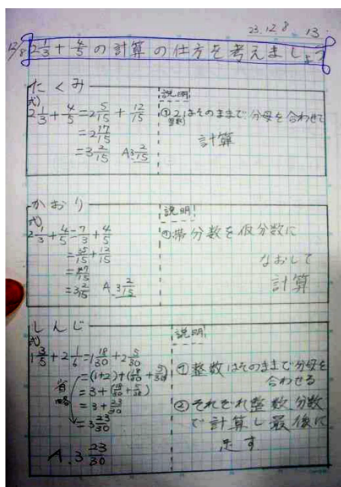 23.12.8 13
12/8 2 1/3 + 4/5 の計算の仕方を考えましょう
たくみ
式)
2 1/3 + 4/5 = 2 5/15 + 12/15
= 2 17/15
= 3 2/15 A 3 2/15
説明!
①2はそのままで分母を合わせて
計算
かおり
式)
2 1/3 + 4/5 = 7/3 + 4/5
= 35/15 + 12/15
= 47/15
= 3 2/15 A 3 2/15
説明!
①帯分数を仮分数に
なおして
計算
しんじ
式)
1 3/5 + 2 1/6 = 1 18/30 + 2 5/30
= (1+2) + (18/30 + 5/30)
= 3 + (18/30 + 5/30)
= 3 + 23/30
= 3 23/30
A. 3 23/30
説明!
①整数はそのままで分母を
合わせる
②それぞれ整数、分数
で計算し最後に
足す